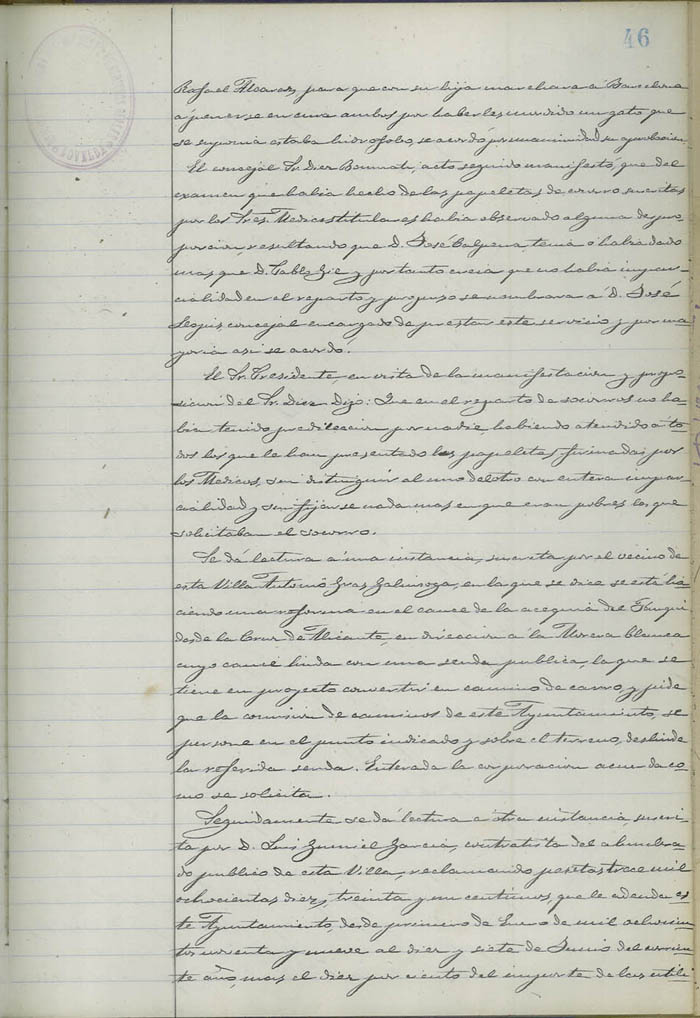 46
Rafael Alvarez, para que con su hija marchara á Barcelona
á ponerse en cura ambos por haberles mordido un gato que
se suponia estaba hidrofobo, se acordó por unanimidad su aprobacion.
El concejal Sr. Diez Bonmati, acto seguido manifestó, que del
examen que habia hecho de las papeletas de socorro suscritas
por los Sres. Medicos titulares habia observado alguna despro-
porcion, resultando que D. José Calpena, tenia ó habia dado
mas que D. Pablo y por tanto creia que no habia impar-
cialidad en el reparto y propuso se nombrara á D. José
concejal encargado de prestar este servicio, y por ma-
yoria asi se acordó.
El Sr. Presidente, en vista de la manifestacion y propo-
sicion del Sr. Diez Dijo: Que en el reparto de socorros no ha-
bia tenido predileccion por nadie, habiendo atendido á to-
dos los que le han presentado las papeletas firmadas por
los Medicos, sin distinguir al uno del otro con entera impar-
cialidad y sin fijarse nada mas en que eran pobres los que
solicitaban el socorro.
Se dá lectura á una instancia, suscrita por el vecino de
esta Villa Antonio, en la que se dice se está ha-
ciendo una reforma en el cauce de la acequia del
desde la Cruz de Alicante, en direccion á la Morera blanca
cuyo cauce linda con una senda publica, la que se
tiene en proyecto convertir en camino de carro, y pide
que la comision de caminos de este Ayuntamiento, se
persone en el punto indicado y sobre el terreno, deslinde
la referida senda. Enterada la corporacion acuerda co-
mo se solicita.
Seguidamente se dá lectura á otra instancia, suscri-
ta por D. Luis Garcia, contratista del alumbra-
do publico de esta Villa, reclamando pesetas trece mil
ochocientas diez, treinta y un centimos, que le adeuda es-
te Ayuntamiento, desde primero de Enero de mil ochocien-
tos noventa y nueve al diez y siete de Junio del corrien-
te año, mas el diez por ciento del importe de los utili-